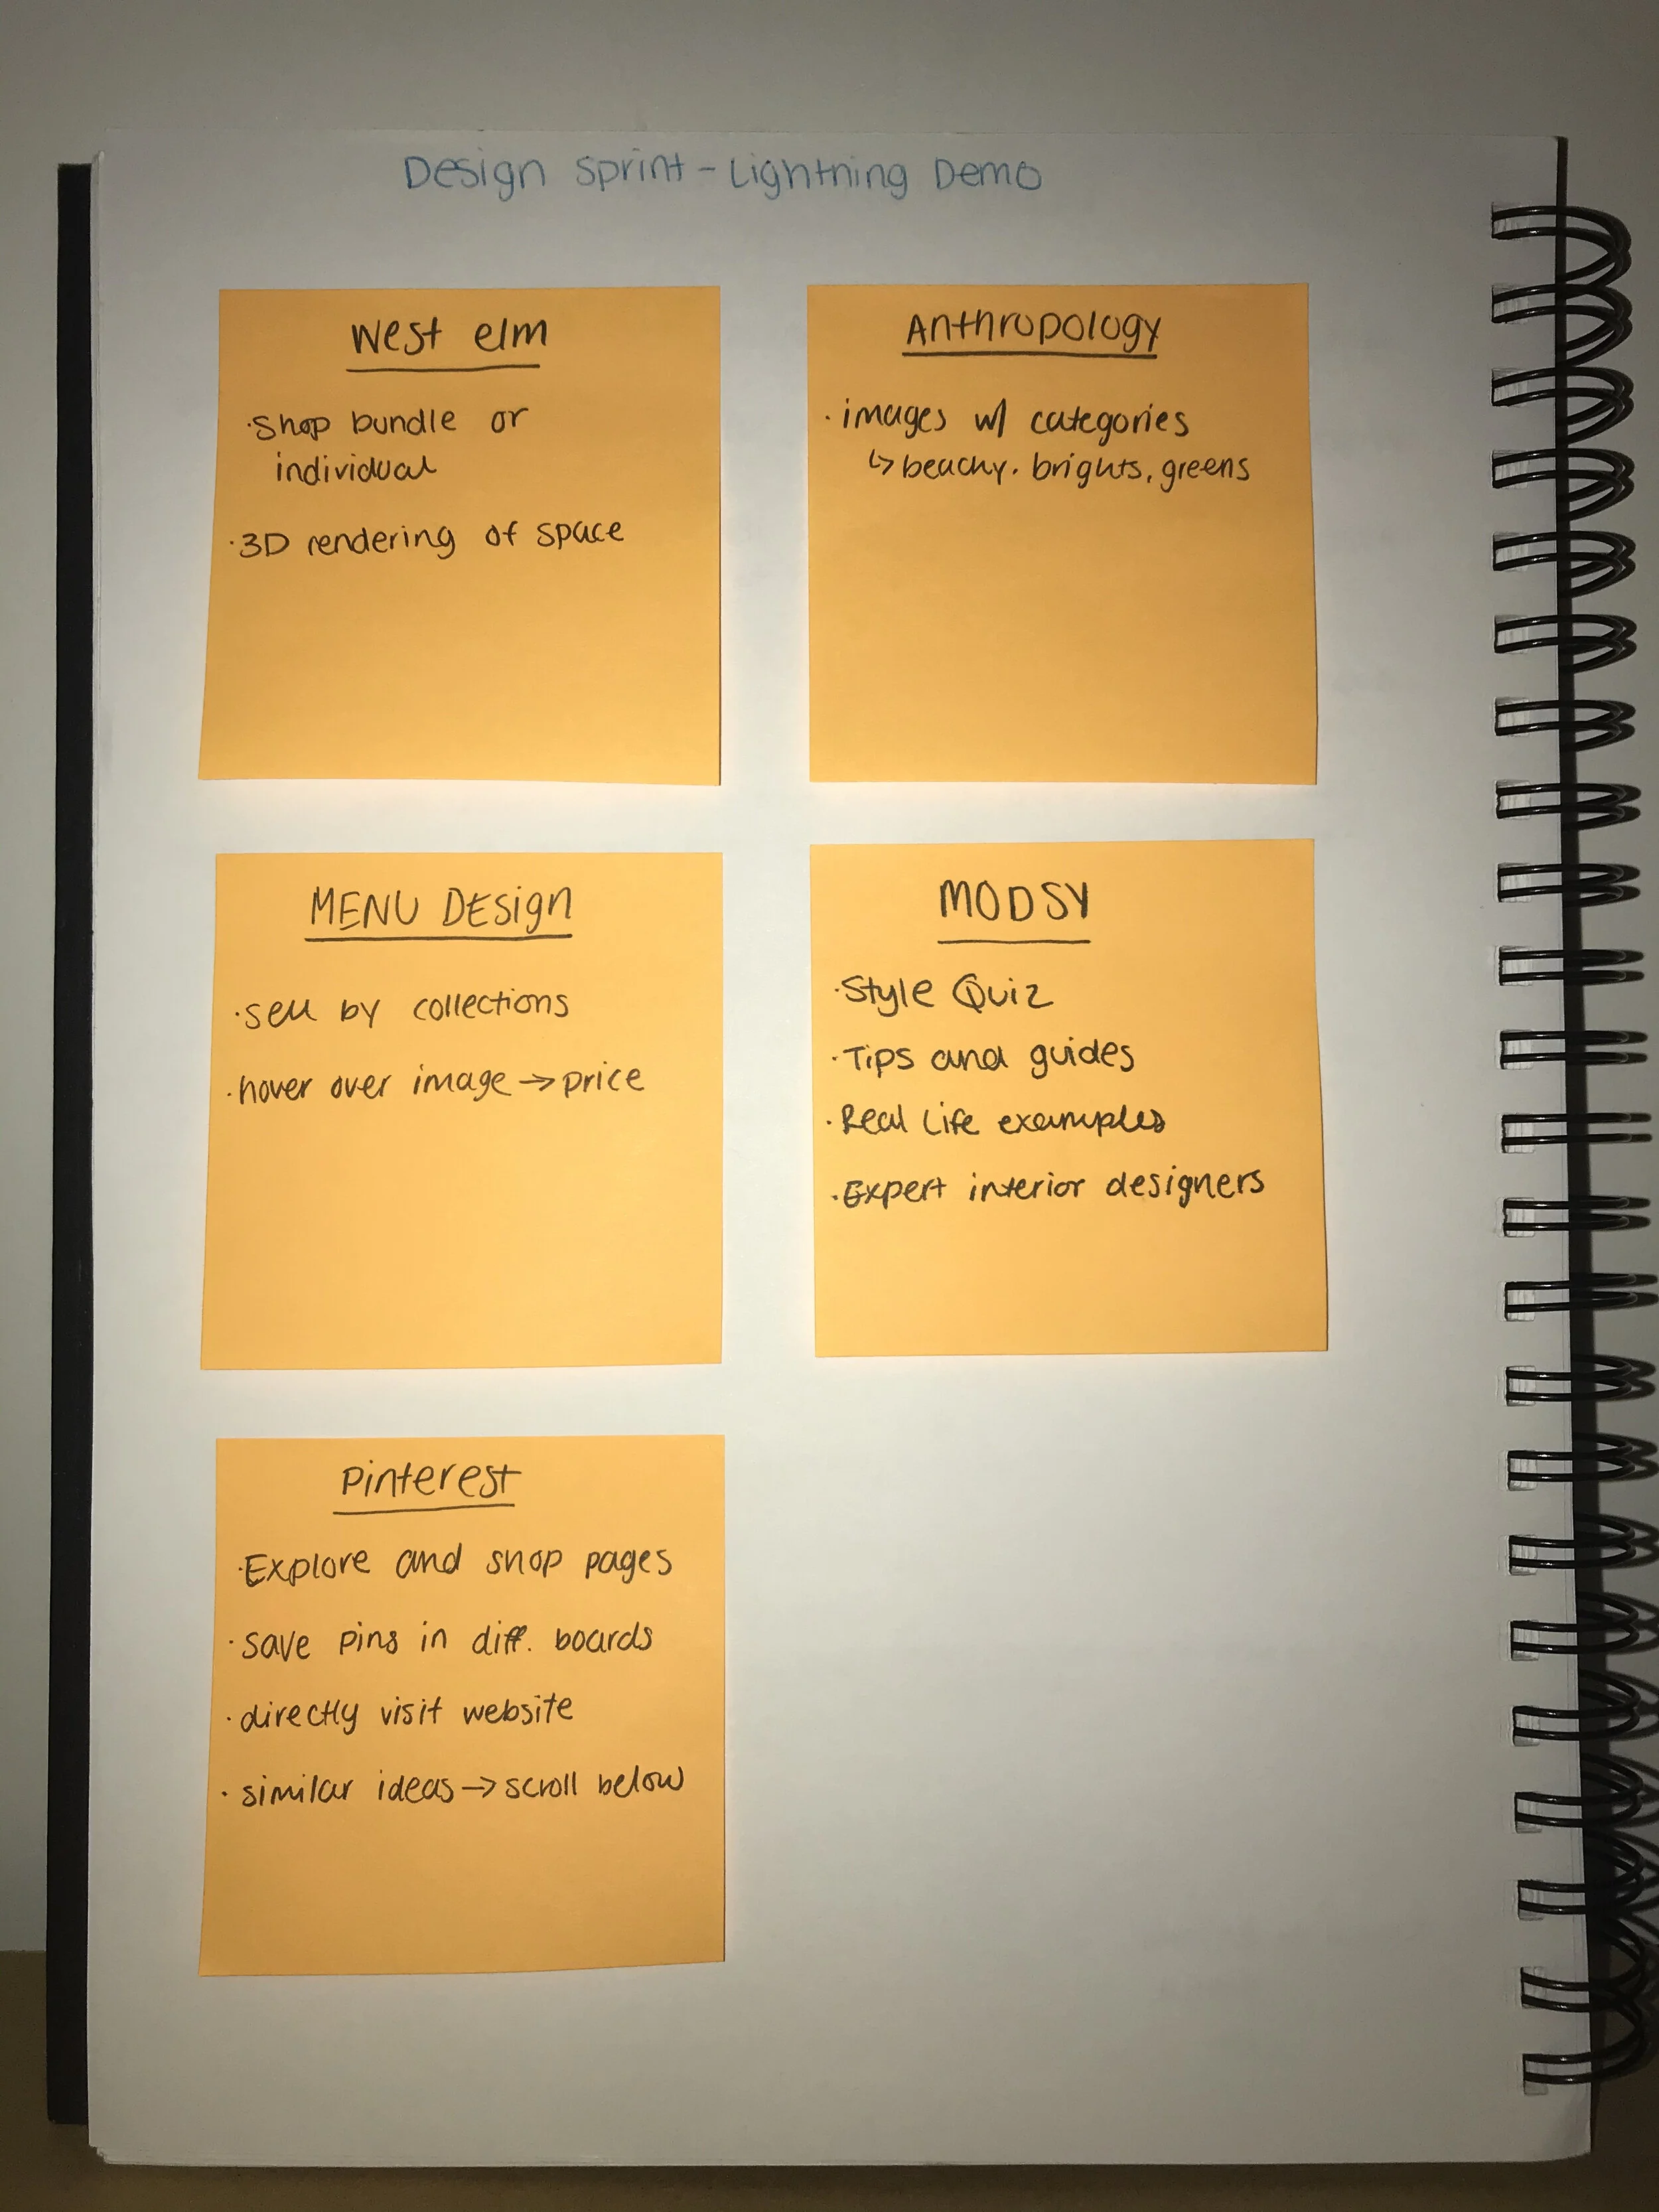 Design Sprint - Lightning Demo
West elm
· Shop bundle or
individual
· 3D rendering of space
Anthropology
· images w/ categories
↳ beachy. brights, greens
MENU Design
· sell by collections
· hover over image → price
MODSY
· Style Quiz
· Tips and guides
· Real Life examples
· Expert interior designers
Pinterest
· Explore and shop pages
· save pins in diff. boards
· directly visit website
· similar ideas → scroll below